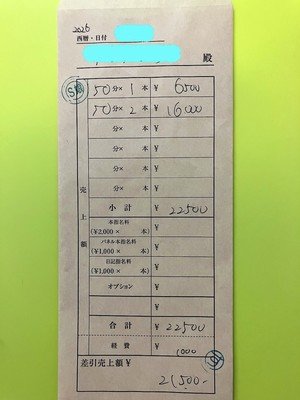 2026
西暦・日付
殿
50分× 1本 ¥ 6500
50分× 2本 ¥ 16000
分× 本 ¥
分× 本 ¥
分× 本 ¥
分× 本 ¥
売上額
小計 ¥ 22500
本指名料
(¥2,000× 本) ¥
パネル本指名料
(¥1,000× 本) ¥
日記指名料
(¥1,000× 本) ¥
オプション ¥
¥
合計 ¥ 22500
経費 ¥ 1000
差引売上額¥
21,500-